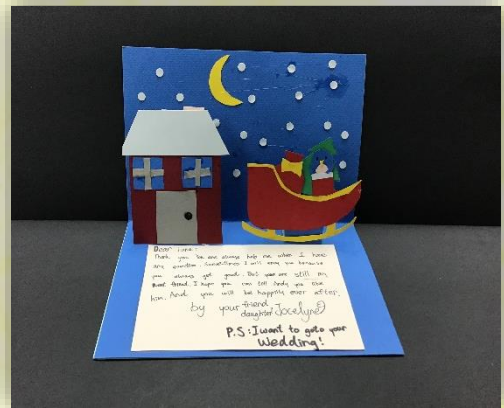 Dear Luna:
Thank you be one always help me when I have
any question. Sometimes I will envy you because
you always get good. But you are still my
best friend. I hope you can tell Andy you like
him. And you will be happily ever after.
by your friend
daughter (Jocelyne)
P.S: I want to go to your
Wedding!